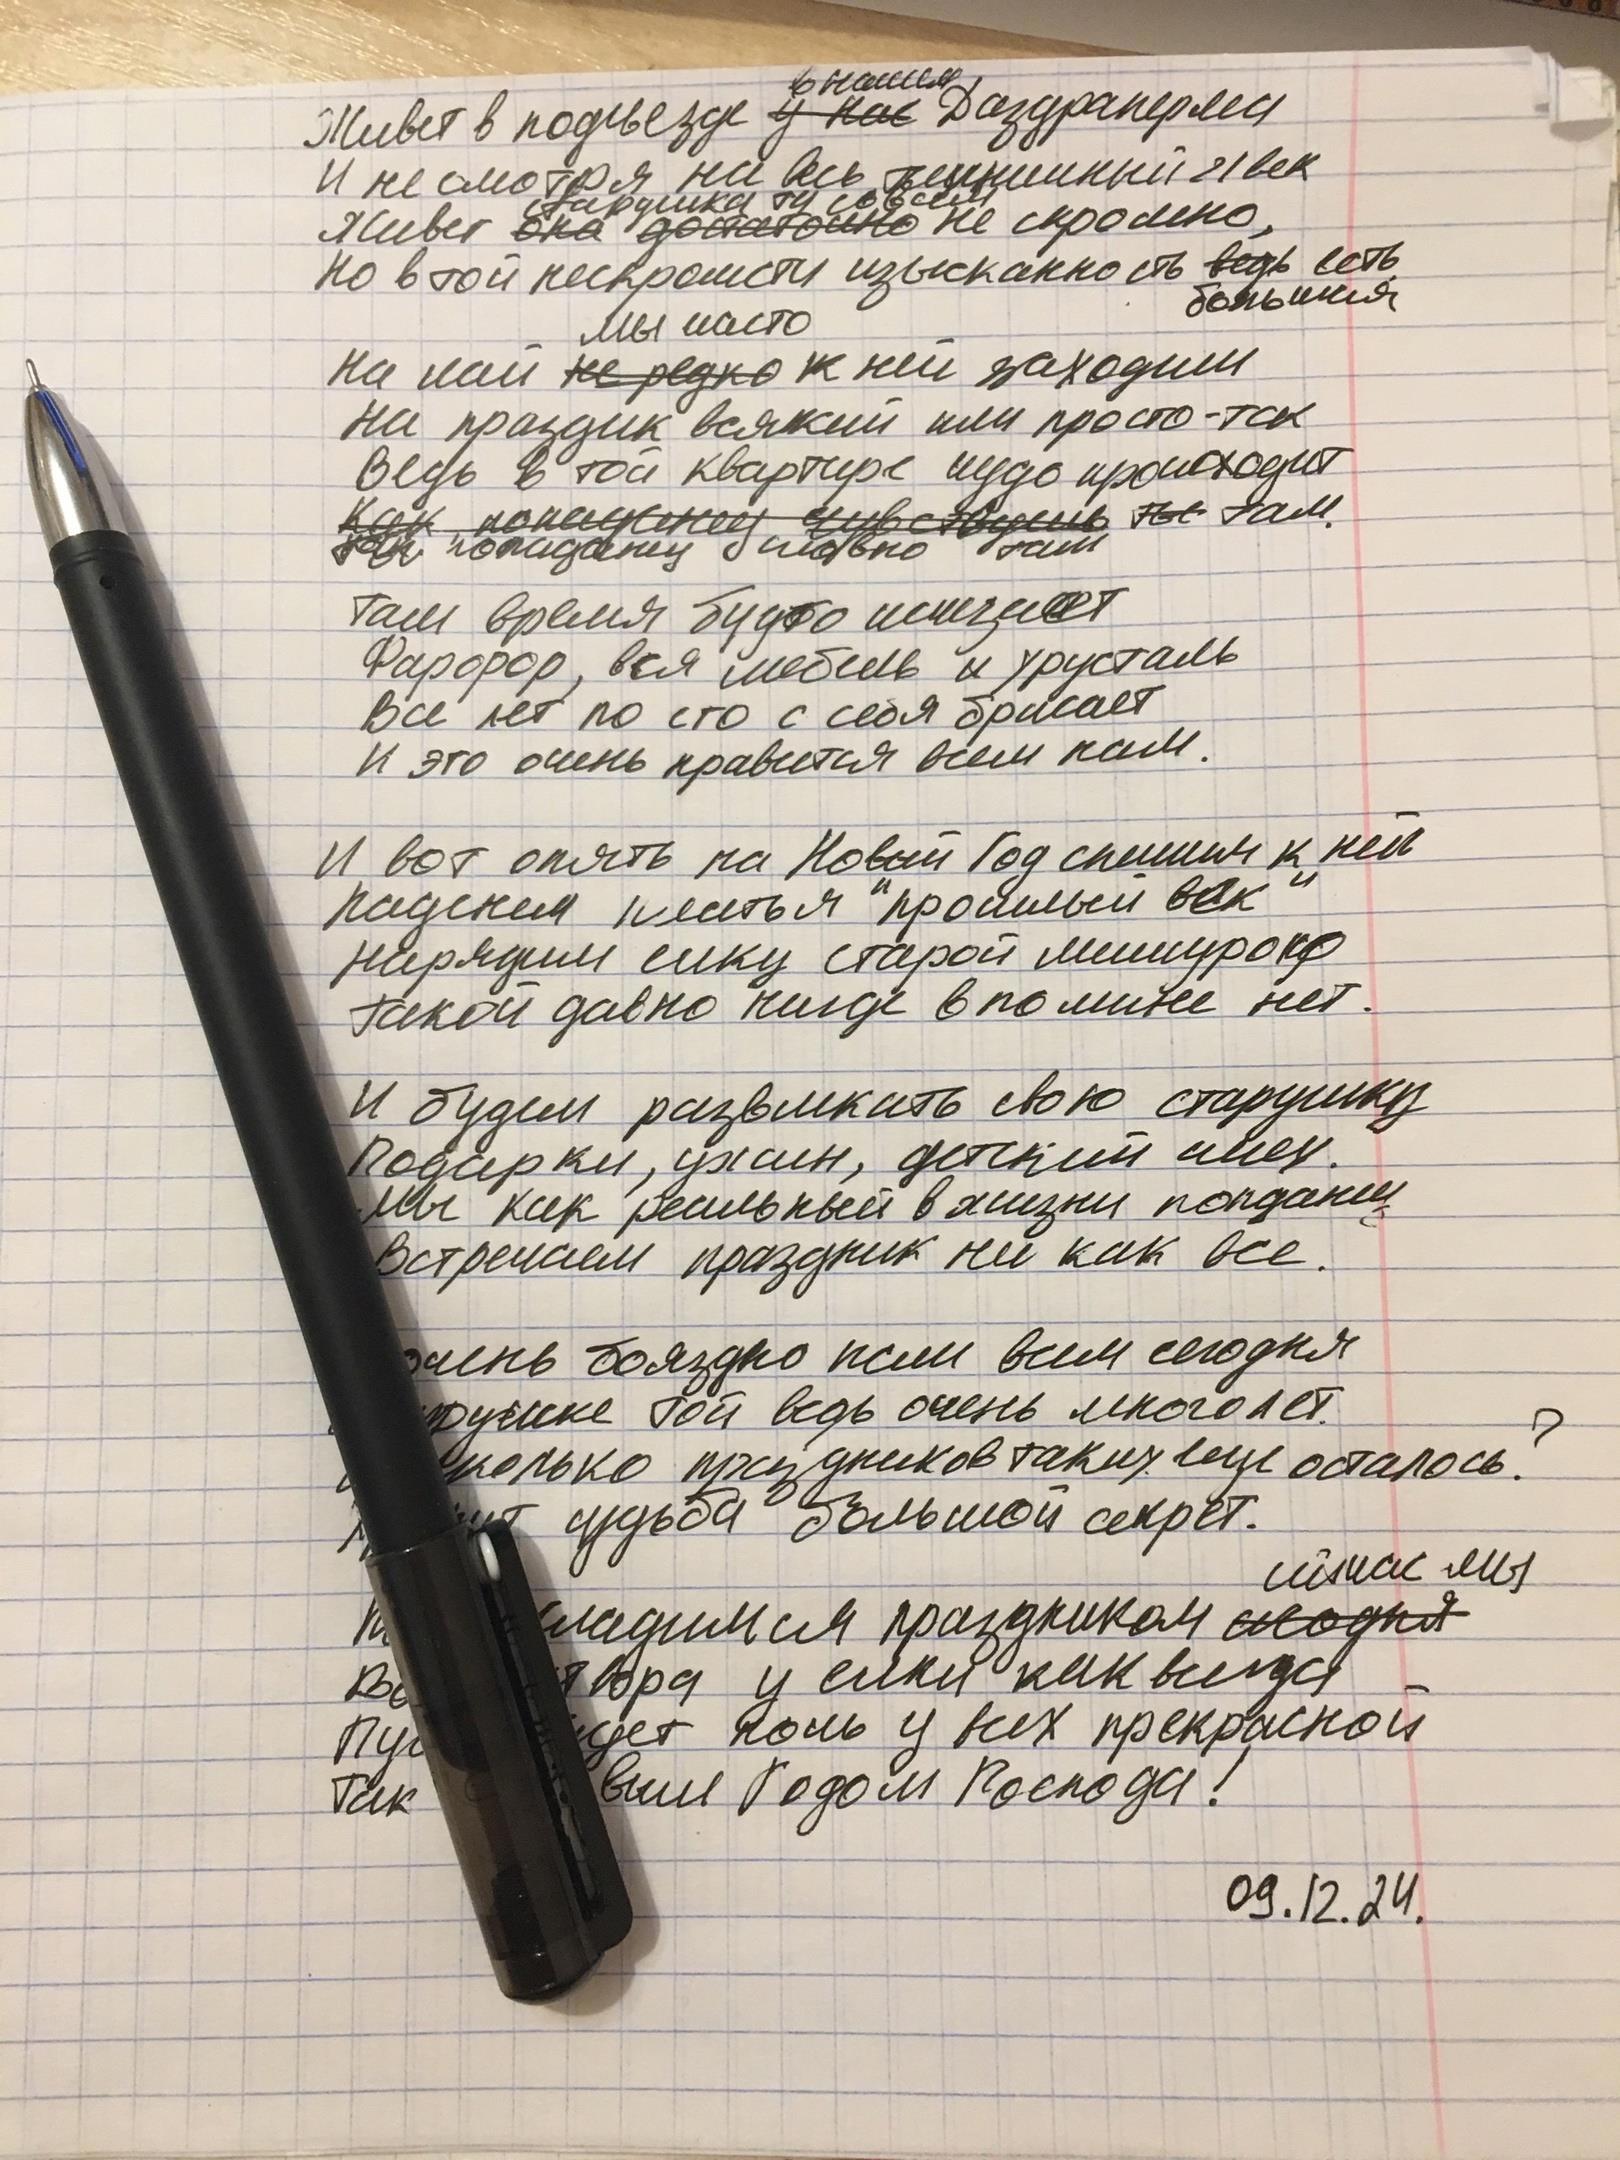 в нашем
Живет в подъезде у нас Даздраперма
И не смотря на весь нынешний 21 век
старушка ту совсем
Живет она достаточно не скромно,
Но в той нескромсти изысканность ведь есть
большия
мы часто
На чай не редко к ней заходим
На праздик всякий или просто-так
Ведь в той квартире чудо происходит
Как попаденец чувствуешь ты там.
ты попаданец словно там
Там время будто исчезает
Фарфор, вся мебель и хрусталь
Все лет по сто с себя бросает
И это очень нравится всем нам.
И вот опять на Новый Год спешим к ней
Наденем платья "прошлый век"
Нарядим елку старой мишурою
Такой давно нигде в помине нет.
И будем развлекать свою старушку
Подарки, ужин, детский смех.
Мы как реальный в жизни попданец
Встречаем праздник не как все.
очень боязно нам всем сегодня
той ведь очень много лет.
сколько праздников таких еще осталось?
судьба большой секрет.
сейчас мы
сладимся праздником сегодня
у елки как всегда
ноль у них прекрасной
Так вым Годом Господа!
09.12.24.